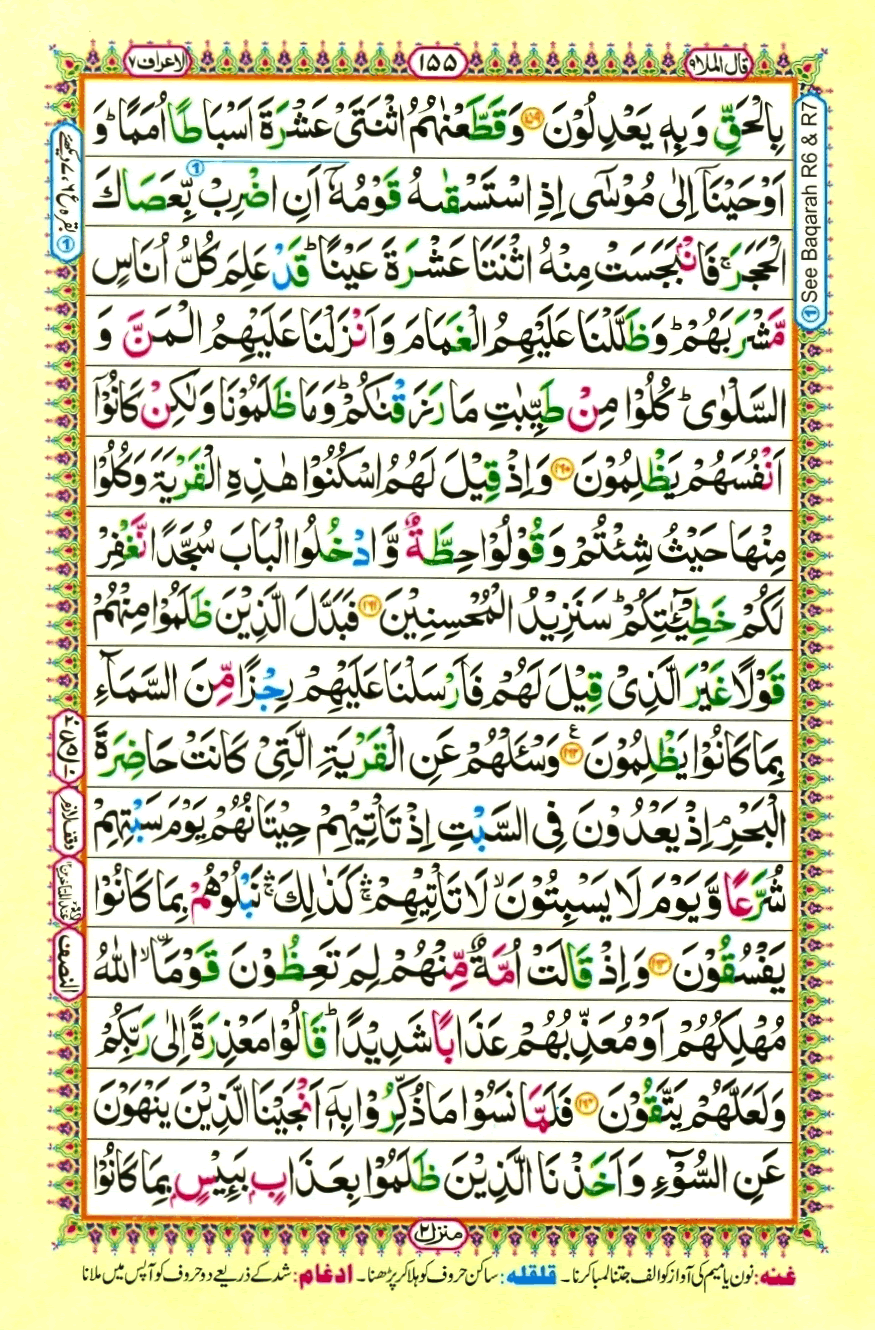 قال الملا۹
۱۵۵
الاعراف۷
بِالْحَقِّ وَبِهٖ يَعْدِلُوْنَ ۝۱۵۹ وَقَطَّعْنٰهُمُ اثْنَتَىْ عَشْرَةَ اَسْبَاطًا اُمَمًا ؕ وَ
اَوْحَيْنَاۤ اِلٰى مُوْسٰٓى اِذِ اسْتَسْقٰىهُ قَوْمُهٗۤ اَنِ اضْرِبْ بِّعَصَاكَ
الْحَجَرَ ۚ فَانْۢبَجَسَتْ مِنْهُ اثْنَتَا عَشْرَةَ عَيْنًا ؕ قَدْ عَلِمَ كُلُّ اُنَاسٍ
مَّشْرَبَهُمْ ؕ وَظَلَّلْنَا عَلَيْهِمُ الْغَمَامَ وَاَنْزَلْنَا عَلَيْهِمُ الْمَنَّ وَ
السَّلْوٰى ؕ كُلُوْا مِنْ طَيِّبٰتِ مَا رَزَقْنٰكُمْ ؕ وَمَا ظَلَمُوْنَا وَلٰكِنْ كَانُوْۤا
اَنْفُسَهُمْ يَظْلِمُوْنَ ۝۱۶۰ وَاِذْ قِيْلَ لَهُمُ اسْكُنُوْا هٰذِهِ الْقَرْيَةَ وَكُلُوْا
مِنْهَا حَيْثُ شِئْتُمْ وَقُوْلُوْا حِطَّةٌ وَّادْخُلُوا الْبَابَ سُجَّدًا نَّغْفِرْ
لَكُمْ خَطِيْٓـٰٔتِكُمْ ؕ سَنَزِيْدُ الْمُحْسِنِيْنَ ۝۱۶۱ فَبَدَّلَ الَّذِيْنَ ظَلَمُوْا مِنْهُمْ
قَوْلًا غَيْرَ الَّذِىْ قِيْلَ لَهُمْ فَاَرْسَلْنَا عَلَيْهِمْ رِجْزًا مِّنَ السَّمَآءِ
بِمَا كَانُوْا يَظْلِمُوْنَ ۝۱۶۲ ع وَسْـَٔلْهُمْ عَنِ الْقَرْيَةِ الَّتِىْ كَانَتْ حَاضِرَةَ
الْبَحْرِ ۘ اِذْ يَعْدُوْنَ فِى السَّبْتِ اِذْ تَاْتِيْهِمْ حِيْتَانُهُمْ يَوْمَ سَبْتِهِمْ
شُرَّعًا وَّيَوْمَ لَا يَسْبِتُوْنَ ۙ لَا تَاْتِيْهِمْ ۛۚ كَذٰلِكَ ۛۚ نَبْلُوْهُمْ بِمَا كَانُوْا
يَفْسُقُوْنَ ۝۱۶۳ وَاِذْ قَالَتْ اُمَّةٌ مِّنْهُمْ لِمَ تَعِظُوْنَ قَوْمَا ۙ اۨللّٰهُ
مُهْلِكُهُمْ اَوْ مُعَذِّبُهُمْ عَذَابًا شَدِيْدًا ؕ قَالُوْا مَعْذِرَةً اِلٰى رَبِّكُمْ
وَلَعَلَّهُمْ يَتَّقُوْنَ ۝۱۶۴ فَلَمَّا نَسُوْا مَا ذُكِّرُوْا بِهٖۤ اَنْجَيْنَا الَّذِيْنَ يَنْهَوْنَ
عَنِ السُّوْٓءِ وَاَخَذْنَا الَّذِيْنَ ظَلَمُوْا بِعَذَابٍۭ بَـِٔيْسٍۭ بِمَا كَانُوْا
① See Baqarah R6 & R7
وقف لازم
النصف
منزل۲
غنہ: نون یا میم کی آواز کو الف جتنا لمبا کرنا۔ قلقلہ: ساکن حروف کو ہلا کر پڑھنا۔ ادغام: شد کے ذریعے دو حروف کو آپس میں ملانا